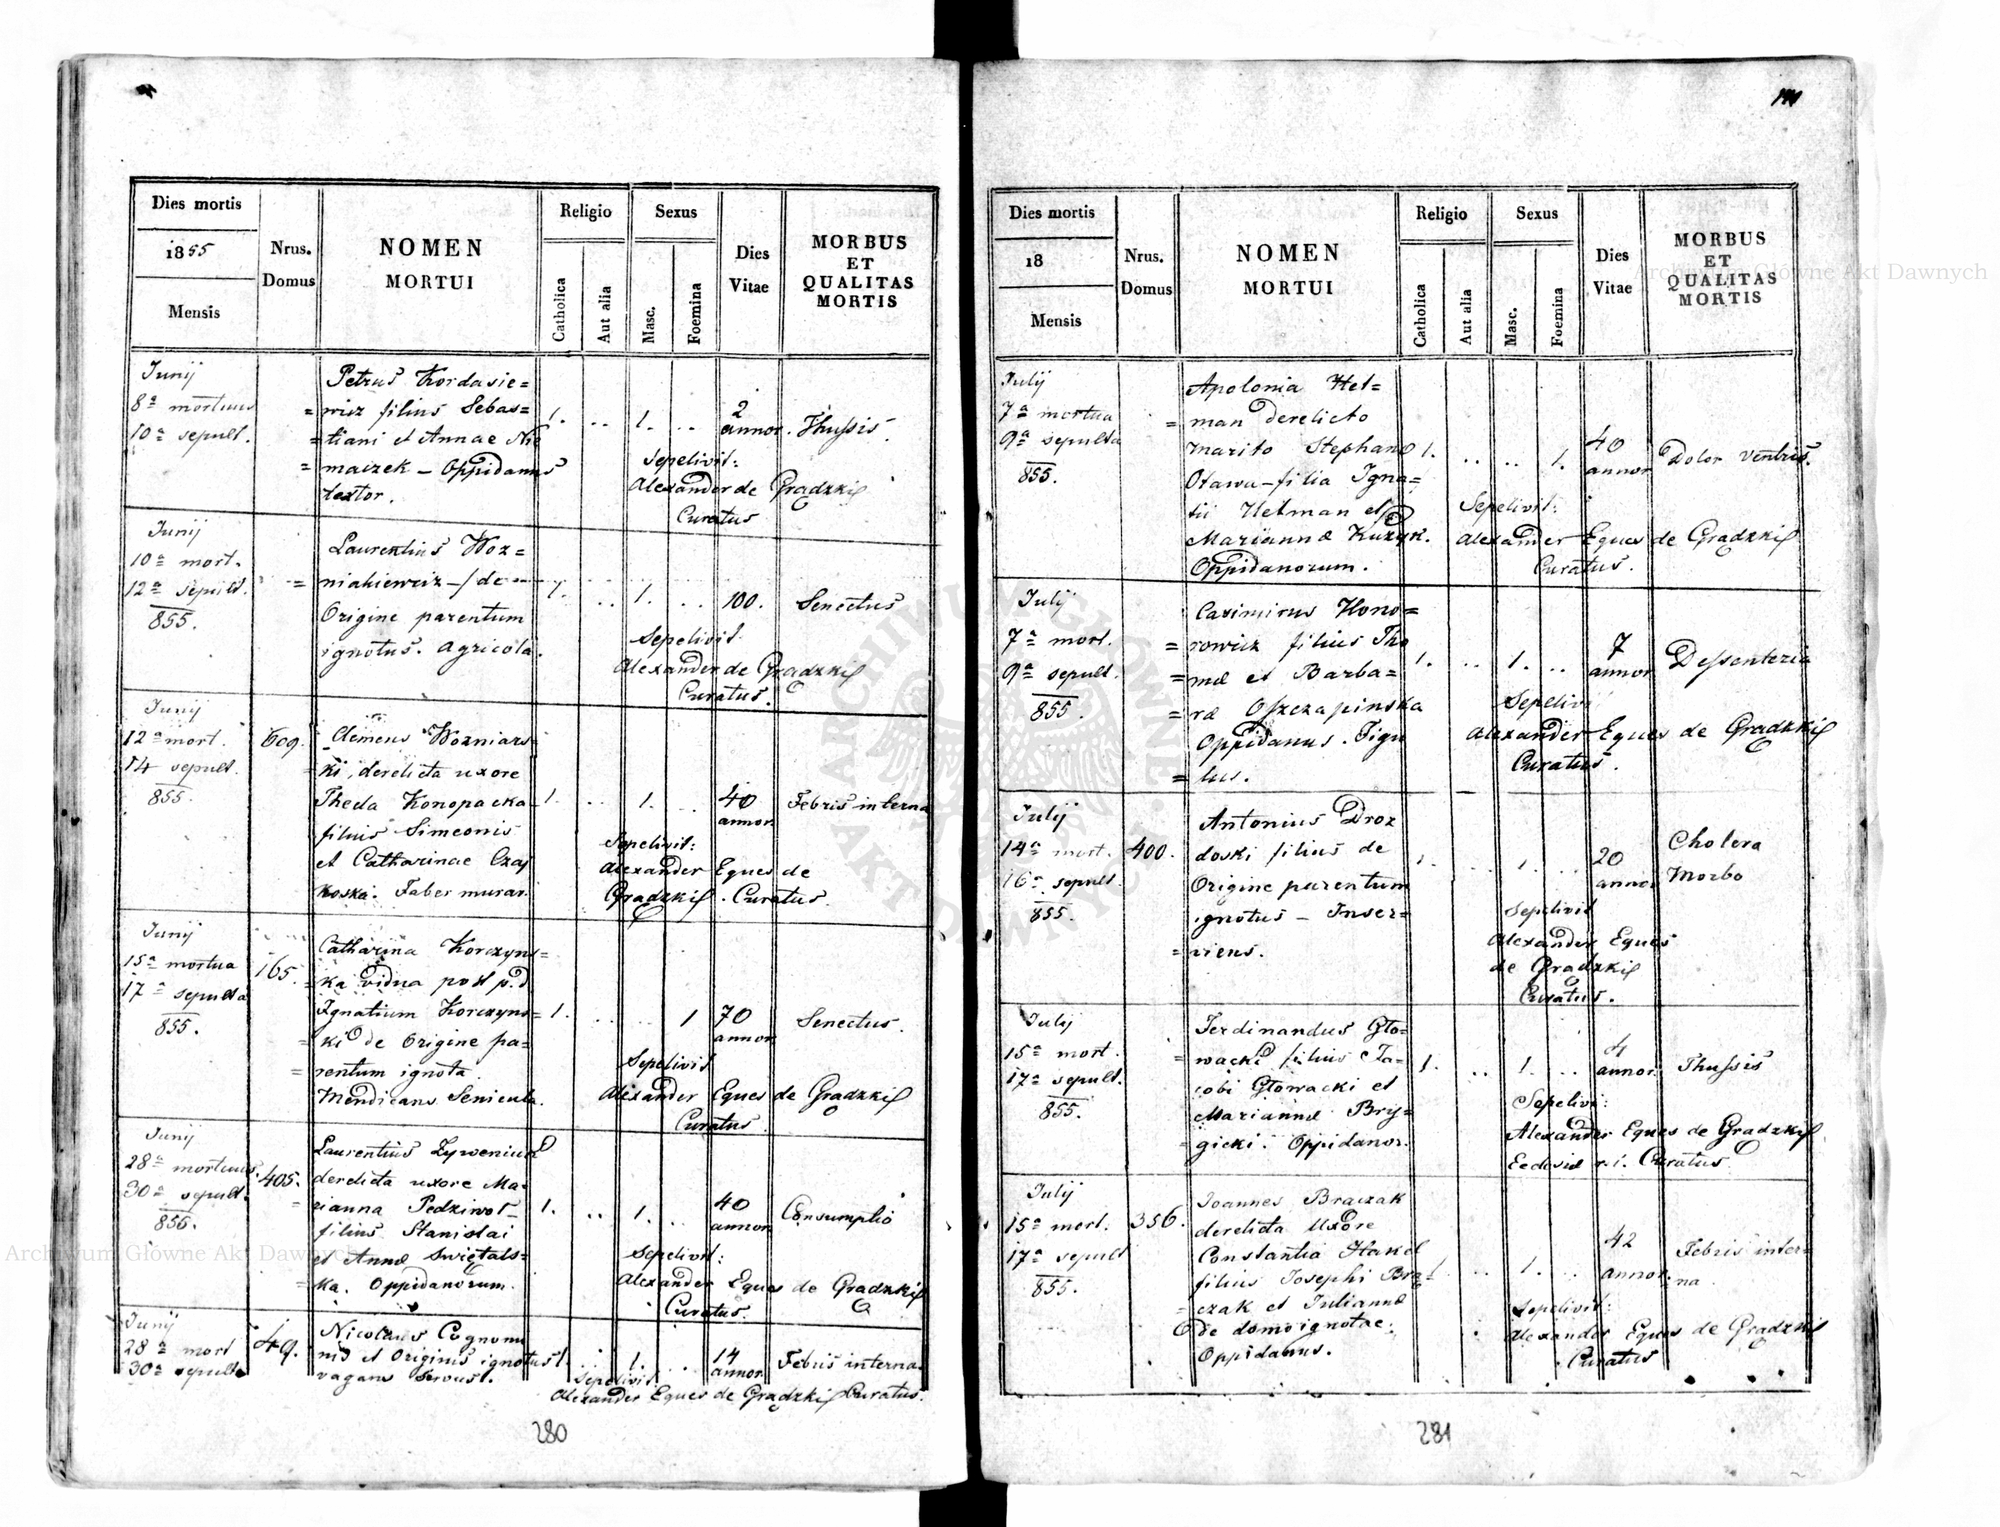 Dies mortis
1855
Mensis
Nrus.
Domus
NOMEN
MORTUI
Religio
Catholica
Aut alia
Sexus
Masc.
Foemina
Dies
Vitae
MORBUS
ET
QUALITAS
MORTIS
Junij
8a mortuus
10a sepult.
Petrus Kordasie=
=wicz filius Sebas=
=tiani et Annae Nie
=maczek – Oppidanus
textor.
1. .. 1. ..
2
annor.
Thussis.
Sepelivit:
Alexander de Gradzki
Curatus
Junij
10a mort.
12a sepult.
855.
Laurentius Woz=
=niakiewicz – de
Origine parentum
ignotus. Agricola.
1. .. 1. ..
100.
Senectus
Sepelivit
Alexander de Gradzki
Curatus.
Junij
12a mort.
14 sepult.
855.
609.
Clemens Wozniars
ki, derelicta uxore
Theda Konopacka
filius Simeonis
et Catharinae Czaj
koska. Faber murar.
1. .. 1. ..
40
annor.
Febris interna
Sepelivit:
Alexander Eques de
Gradzki. Curatus.
Junij
15a mortua
17a sepulta
855.
165.
Catharina Korczyns=
=ka vidua post p.d
Ignatium Korczyns=
=ki de Origine pa=
=rentum ignota.
Mendicans Senicula.
1. .. 1
70
annor
Senectus.
Sepelivit
Alexander Eques de Gradzki
Curatus
Junij
28a mortuus.
30a sepult.
855.
405.
Laurentius Zyweniud
derelicta uxore Ma=
=rianna Pedziwot
filius Stanislai
et Annæ Swiętals=
=ka. Oppidanorum.
1. .. 1. ..
40
annor
Consumptio
Sepelivit:
Alexander Eques de Gradzki
Curatus.
Junij
28a mort
30a sepult
49.
Nicolaus Cognomi
nis et Originis ignotus
vagans servus.
1. .. 1. ..
14
annor.
Febris interna.
Sepelivit
Alexander Eques de Gradzki Curatus.
280
Dies mortis
18
Mensis
Nrus.
Domus
NOMEN
MORTUI
Religio
Catholica
Aut alia
Sexus
Masc.
Foemina
Dies
Vitae
MORBUS
ET
QUALITAS
MORTIS
Julij
7a mortua
9a sepulta
855.
Apolonia Het=
=man derelicto
marito Stephano
Otawa – filia Igna=
tii Hetman et
Mariannæ Kuzyk.
Oppidanorum.
1. .. .. 1.
40
annor
Dolor ventris.
Sepelivit:
Alexander Eques de Gradzki
Curatus.
Julij
7a mort.
9a sepult.
855.
Casimirus Hono=
=rowicz filius Tho
=mæ et Barba=
=ræ Oszczapinska
Oppidanus. Figu
=lus.
1. .. 1. ..
7
annor
Dessenteria
Sepelivi
Alexander Eques de Gradzki
Curatus.
Julij
14a mort.
16a sepult.
855.
400.
Antonius Droz
doski filius de
Origine parentum
ignotus – Inser=
=viens.
1. .. 1. ..
20
annor
Cholera
Morbo
Sepelivit
Alexander Eques
de Gradzki
Curatus.
Julij
15a mort.
17a sepult.
855.
Ferdinandus Gło=
=wacki filius Ja=
cobi Głowacki et
Mariannæ Bry=
=gicki. Oppidanor.
1. .. 1. ..
4
annor.
Thussis
Sepelivi:
Alexander Eques de Gradzki
Ecclesiæ r.l. Curatus
Julij
15a mort.
17a sepult
855.
356.
Joannes Braczak
derelicta Uxore
Constantia Hakel
filius Josephi Bra=
=czak et Juliannæ
de domo ignotae.
Oppidanus.
.. 1. ..
42
annor.
Febris inter=
na.
Sepelivit:
Alexander Eques de Gradzki
Curatus
281
Archiwum Główne Akt Dawnych
Archiwum Główne Akt Dawnych
ARCHIWUM GŁÓWNE AKT DAWNYCH